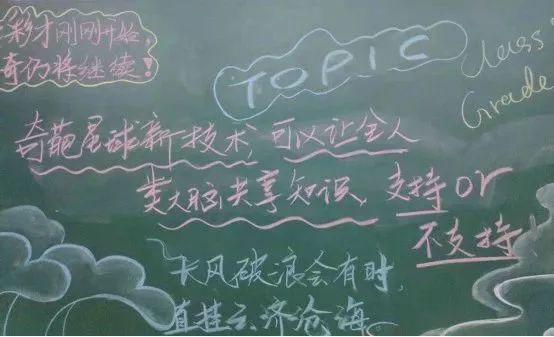 彩才刚刚开始，
奇仍将继续！
TOPIC
Class
Grade
奇葩星球新技术，可以让全人
类大脑共享知识，支持or
不支持！
长风破浪会有时，
直挂云济沧海